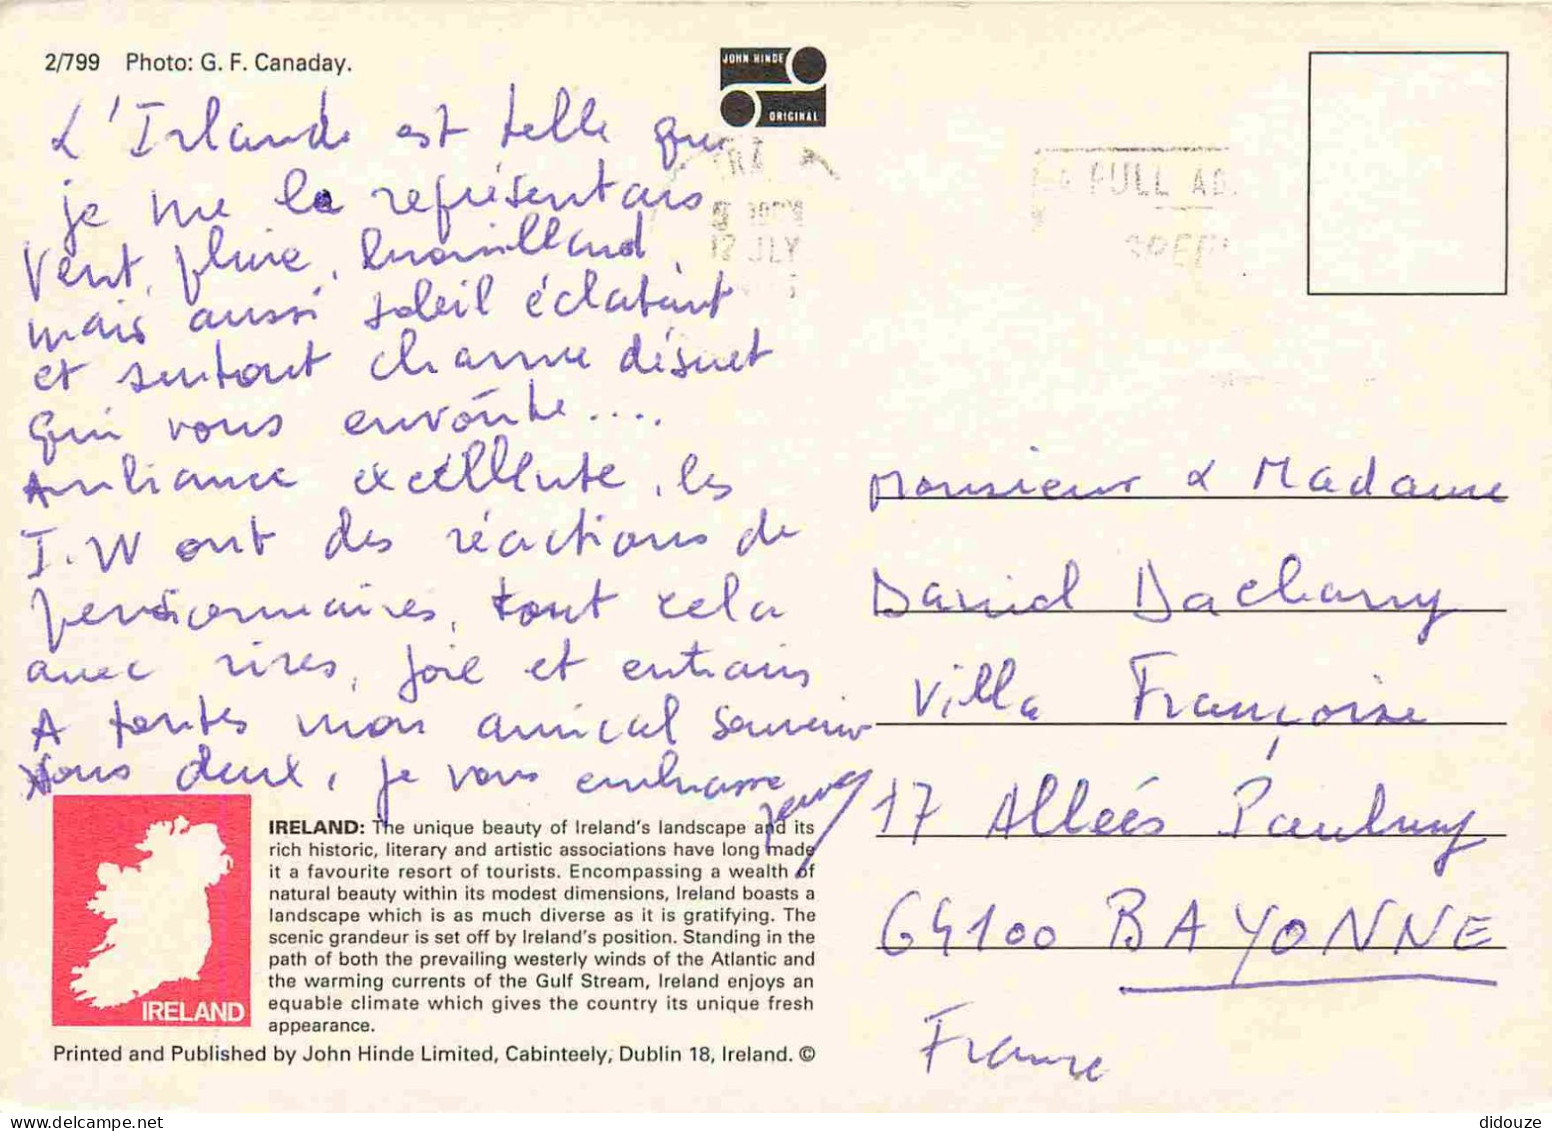 2/799 Photo: G. F. Canaday.
JOHN HINDE
ORIGINAL
L'Irlande est telle que
je me la représentais
Vent, pluie, brouillard,
mais aussi soleil éclatant
et surtout charme désuet
qui vous envoûte....
Ambiance excellente, les
I.W ont des réactions de
pensionnaires, tout cela
avec rires, joie et entrain
A toutes mon amical souvenir
Vous deux, je vous embrasse
12 JLY
FULL AD
Monsieur & Madame
Daniel Dachary
Villa Françoise
17 Allées Paulmy
64100 BAYONNE
France
IRELAND
IRELAND: The unique beauty of Ireland's landscape and its
rich historic, literary and artistic associations have long made
it a favourite resort of tourists. Encompassing a wealth of
natural beauty within its modest dimensions, Ireland boasts a
landscape which is as much diverse as it is gratifying. The
scenic grandeur is set off by Ireland's position. Standing in the
path of both the prevailing westerly winds of the Atlantic and
the warming currents of the Gulf Stream, Ireland enjoys an
equable climate which gives the country its unique fresh
appearance.
Printed and Published by John Hinde Limited, Cabinteely, Dublin 18, Ireland. ©
didouze